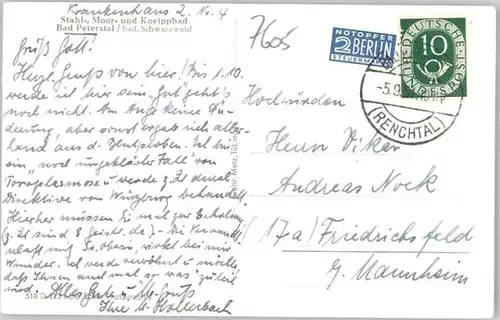 Krankenhaus 2. No. 4
Stahl-, Moor- und Kneippbad
Bad Peterstal / bad. Schwarzwald
7605
NOTOPFER
2 BERLIN
STEUERMARKE
DEUTSCHE
BUNDESPOST
10
-5.9.
(RENCHTAL)
Grüß Gott!
Herzl. Gruß von hier! Bis 1.10.
werde ich hier sein. Gut geht's
noch nicht. Am Auge keine Än-
derung, aber sonst ergab sich aller-
hand aus d. Ich bin
ein „noch ungeklärter Fall" von
Toxoplasmose u. werde z. Zt. durch
Direktive von Würzburg behandelt.
Hierher müssen Sie mal zur Erholung
(z. Zt. sind 8 geistl. da) - Die
mit Fr. Oberin, wirkt bei mir
Wunder. Ich werde verwöhnt u. möchte,
daß Ihnen auch mal so was zuteil
wird. Alles Gute u. Gruß
Ihre M. Hollerbach
Hochwürden
Herrn Vikar
Andreas Nock
(17a) Friedrichsfeld
b. Mannheim